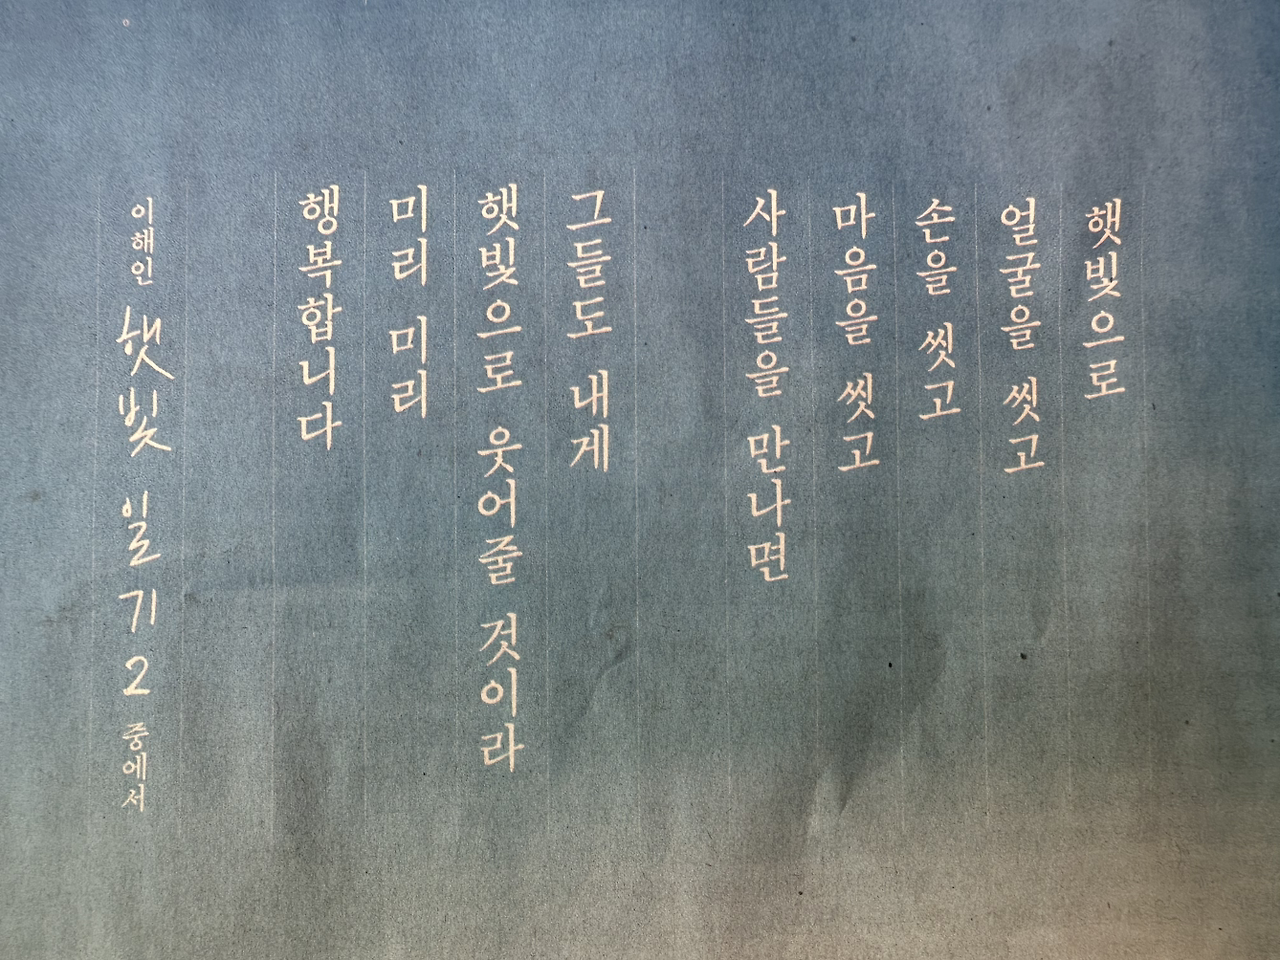 햇빛으로
얼굴을 씻고
손을 씻고
마음을 씻고
사람들을 만나면
그들도 내게
햇빛으로 웃어줄 것이라
미리 미리
행복합니다
이해인 햇빛 일기2 중에서